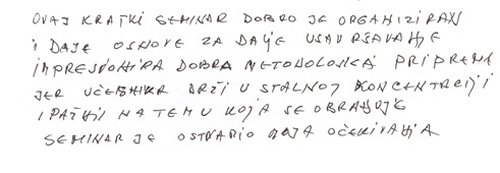 OVAJ KRATKI SEMINAR DOBRO JE ORGANIZIRAN
I DAJE OSNOVE ZA DALJE USAVRŠAVANJE
IMPRESIONIRA DOBRA METODOLOGKA PRIPREMA
JER UČESNIKA DRŽI U STALNOJ KONCENTRACIJI
I PAŽNJI NA TEMU KOJA SE OBRAĐUJE
SEMINAR JE OSTVARIO MOJA OČEKIVANJA